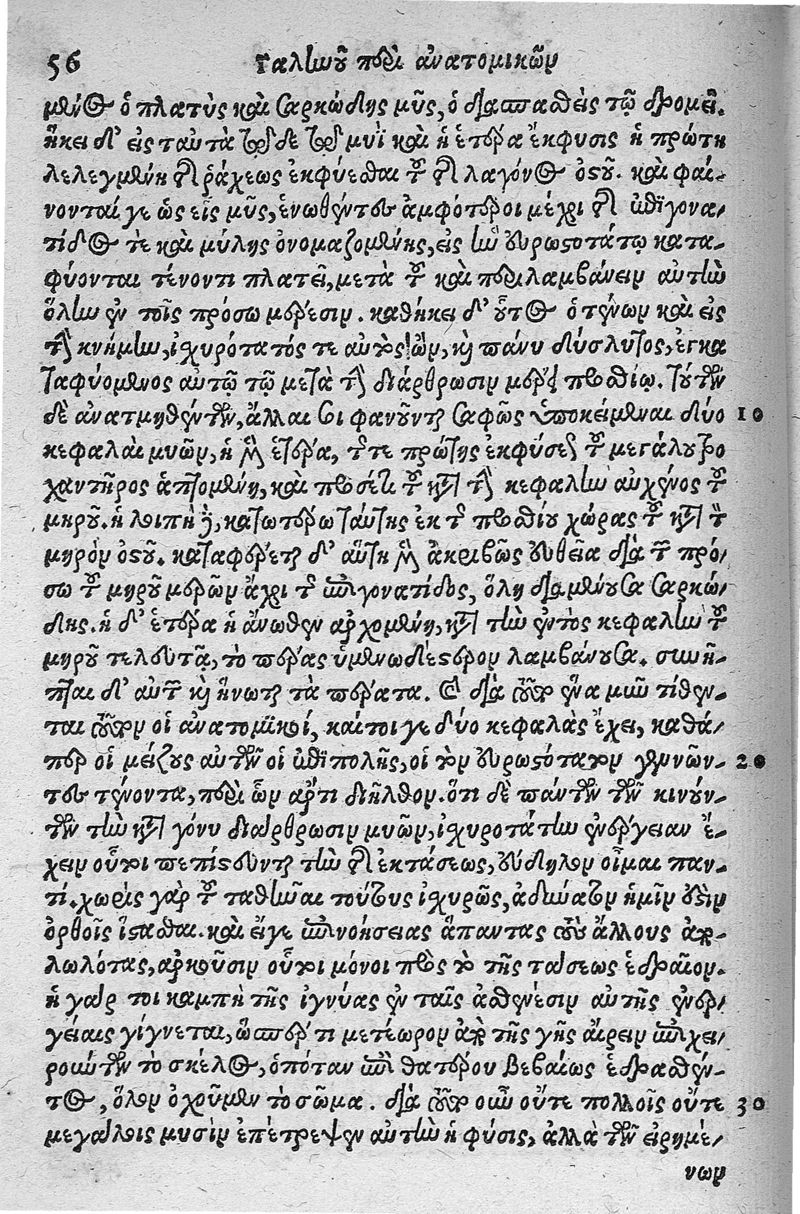 56 Γαληνοῦ περὶ ἀνατομικῶν
μενος ὁ πλατὺς καὶ σαρκώδης μῦς, ὁ διασπασθεὶς τῷ δρομεῖ.
ἥκει δ' εἰς ταυτὸ τῷδε τῷ μυῒ καὶ ἡ ἑτέρα ἔκφυσις ἡ πρώτη
λελεγμένη τῆς ῥάχεως ἐκφύεσθαι τοῦ τῆς λαγόνος ὀστοῦ. καὶ φαί-
νονταί γε ὡς εἷς μῦς, ἑνωθέντες ἀμφότεροι μέχρι τῆς ἐπιγονα-
τίδος τε καὶ μύλης ὀνομαζομένης, εἰς ἣν εὐρωστοτάτῳ κατα-
φύονται τένοντι πλατεῖ, μετὰ τοῦ καὶ περιλαμβάνειν αὐτὴν
ὅλην ἐν τοῖς πρόσω μέρεσιν. καθήκει δ' οὗτος ὁ τένων καὶ εἰς
τὴν κνήμην, ἰσχυρότατός τε αὐτὸς ὢν, καὶ πάνυ δύσλυτος, ἐγκα
ταφυόμενος αὐτῷ τῷ μετὰ τὴν διάρθρωσιν μέρει προσθίῳ. τούτων
δὲ ἀνατμηθέντων, ἄλλαι σοι φανοῦνται σαφῶς ὑποκείμεναι δύο 10
κεφαλαὶ μυῶν, ἡ μὲν ἑτέρα, τῆς τε πρώτης ἐκφύσεως τοῦ μεγάλου τρο
χαντῆρος ἁπτομένη, καὶ προσέτι τοῦ κατὰ τὴν κεφαλὴν αὐχένος τοῦ
μηροῦ. ἡ λοιπὴ δὲ, κατωτέρω ταύτης ἐκ τῆς προσθίου χώρας τοῦ κατὰ τὸν
μηρὸν ὀστοῦ. καταφέρεται δ' αὕτη μὲν ἀκριβῶς εὐθεῖα διὰ τῶν πρό-
σω τοῦ μηροῦ μερῶν ἄχρι τῆς ἐπιγονατίδος, ὅλη διαμένουσα σαρκώ-
δης. ἡ δ' ἑτέρα ἡ ἄνωθεν ἀρχομένη, κατὰ τὴν ἐντὸς κεφαλὴν τοῦ
μηροῦ τελευτᾷ, τὸ πέρας ὑμενωδέστερον λαμβάνουσα. συνῆ-
πται δ' αὐτῶν καὶ ἥνωται τὰ πέρατα. καὶ διὰ τοῦτο ἕνα μῦν τίθεν-
ται τοῦτον οἱ ἀνατομικοί, καίτοι γε δύο κεφαλὰς ἔχει, καθά-
περ οἱ μείζους αὐτῶν οἱ ἐπιπολῆς, οἱ τὸν εὐρωστότατον γεννῶν- 20
τες τένοντα, περὶ ὧν ἄρτι διῆλθον. ὅτι δὲ πάντων τῶν κινούν-
των τὴν κατὰ γόνυ διάρθρωσιν μυῶν, ἰσχυροτάτην ἐνέργειαν ἔ-
χειν οὗτοι πεπίστευνται τὴν τῆς ἐκτάσεως, εὔδηλον οἶμαι παν-
τί. χωρὶς γὰρ τοῦ ταθῆναι τούτους ἰσχυρῶς, ἀδύνατον ἡμῖν ἐστιν
ὀρθοῖς ἵστασθαι. καὶ εἴγε ἐπινοήσειας ἅπαντας τοὺς ἄλλους ἀπο-
λωλότας, ἀρκοῦσιν οὗτοι μόνοι πρὸς τὸ τῆς τάσεως ἑδραῖον.
ἡ γάρ τοι καμπὴ τῆς ἰγνύας ἐν ταῖς ἀσθενέσιν αὐτῆς ἐνερ-
γείαις γίγνεται, ὥσπερ τι μετέωρον ἀπὸ τῆς γῆς αἴρειν ἐπιχει-
ρούντων τὸ σκέλος, ὁπόταν ἐπὶ θατέρου βεβαίως ἑδρασθέν-
τος, ὅλον ὀχοῦμεν τὸ σῶμα. διὰ τοῦτο οὖν οὔτε πολλοῖς οὔτε 30
μεγάλοις μυσὶν ἐπέτρεψεν αὐτὴν ἡ φύσις, ἀλλὰ τῶν εἰρημέ-
νων